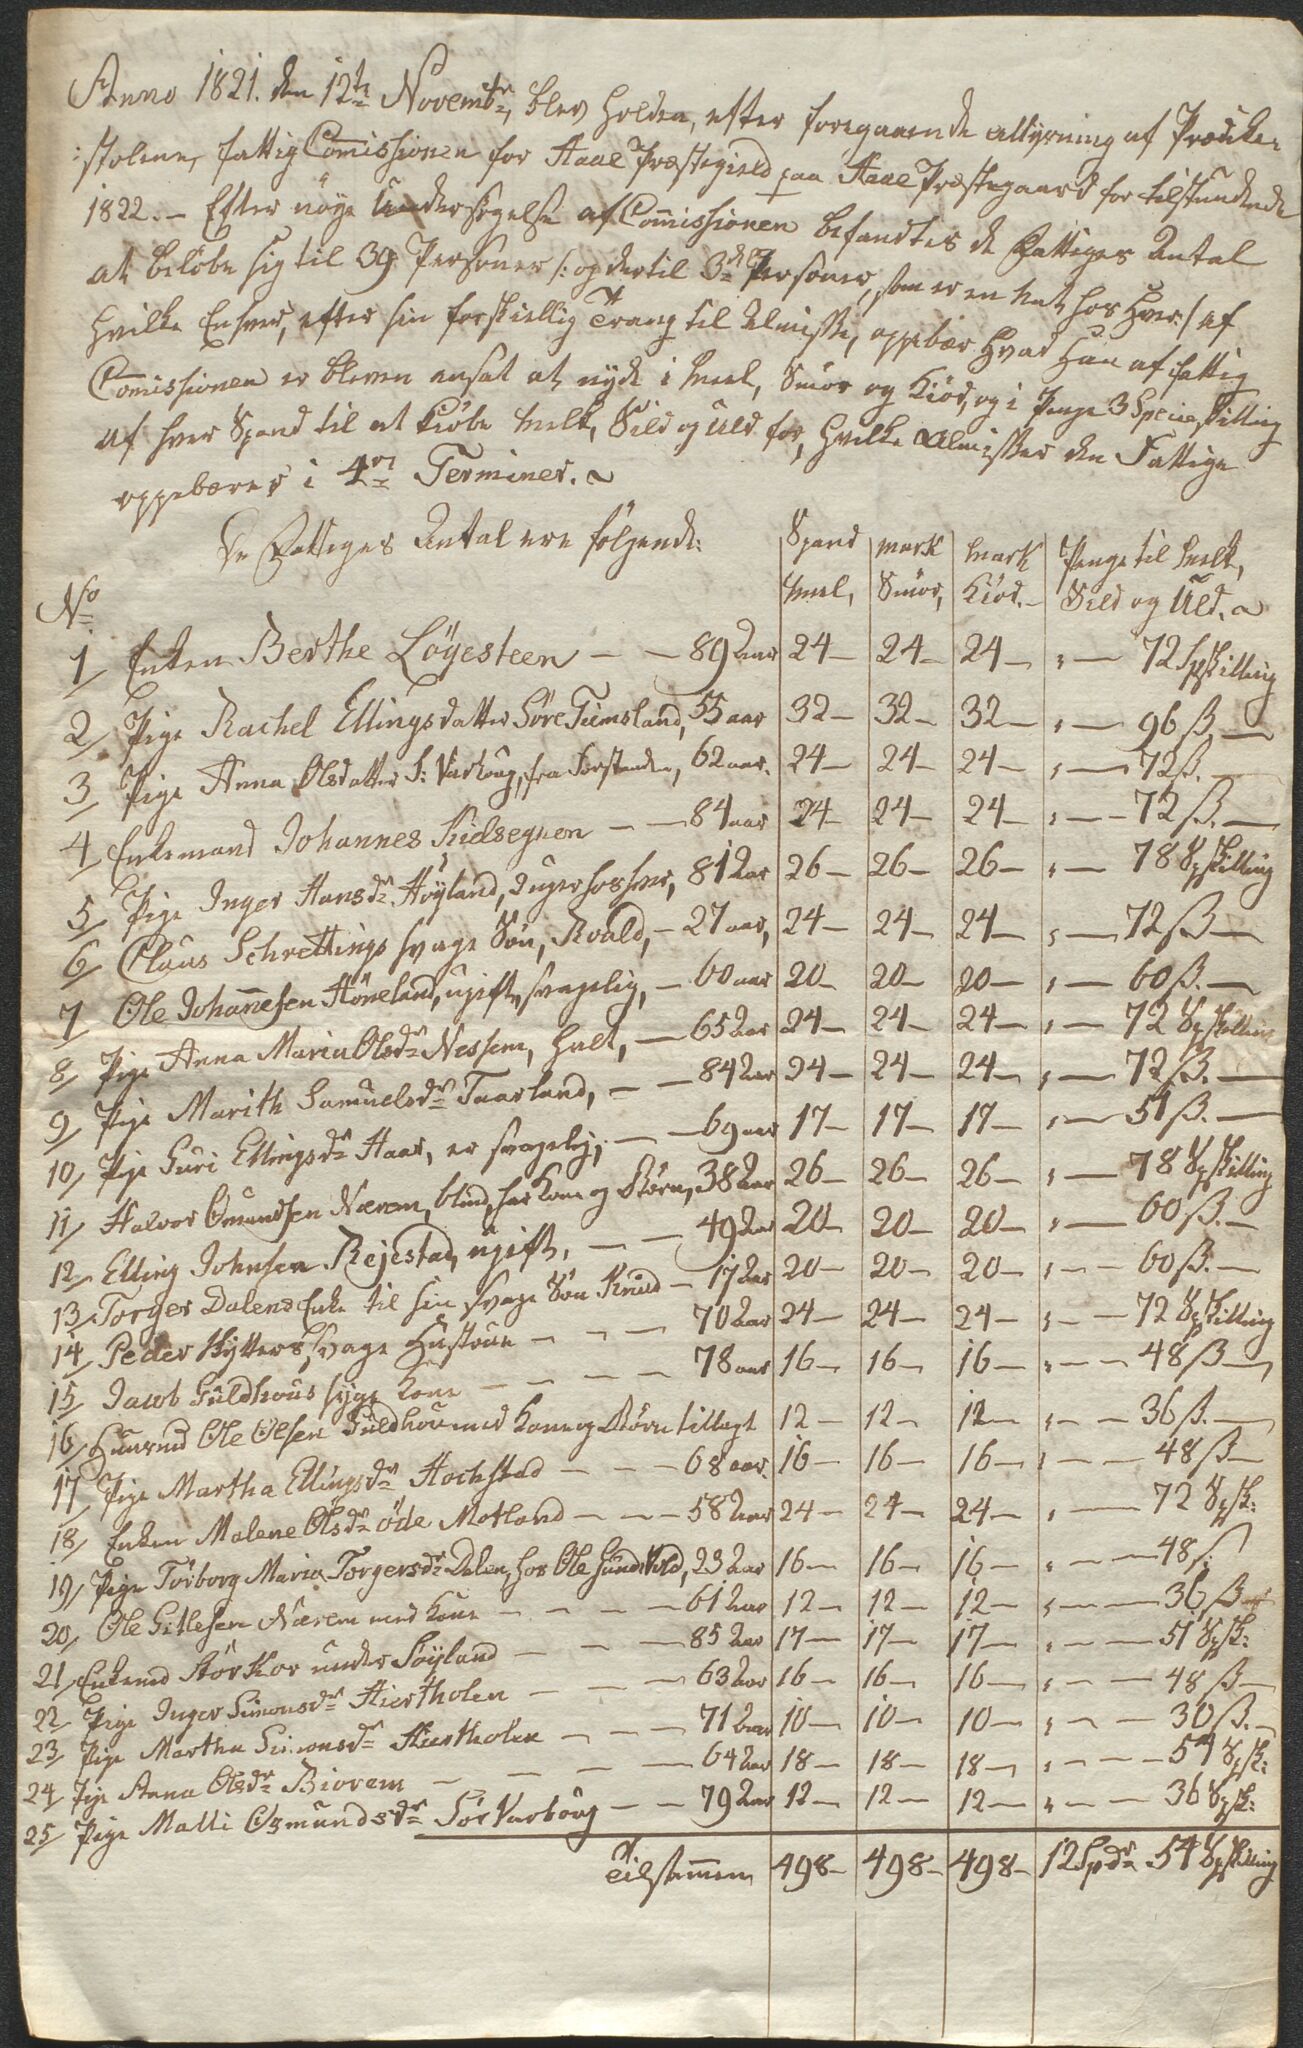 Anno 1821. den 12te Novembr, blev holden, efter foregaaende allysning af Prædike-
:stolene, fattig Comissionen for Haae Præstegield paa Haae Præstegaard for tilstundende
1822. – Efter nöye Undersögelse af Comissionen befandtes de Fattiges Antal
at belöbe sig til 39 Personer /: og dertil 3de Personer, som er en hos hver / af
hvilke Enhver, efter sin forskiellig Trang til Almisse, oppebær hvad ham af fattig
Comissionen er bleven ansat at nyde i Meel, Smör og Kiöd, og i Penge 3 Specieskilling
af hver Spand til at kiöbe Melk, Sild og Uld for, hvilke Almisser den Fattige
oppebærer i 4re Terminer. ~
De Fattiges Antal ere fölgende:
Spand mark mark Penge til Melk,
No Meel, Smör, Kiöd. – Sild og Uld. ~
1/ Enken Berthe Löyesteen – – 89 Aar 24 – 24 – 24 – " – 72 Spskilling
2/ Pige Rachel Ellingsdatter Söre Tiemsland, 55 aar 32 – 32 – 32 – " – 96 ß. –
3/ Pige Anna Olsdatter S: Varhoug, fra Forstanden, 62 aar. 24 – 24 – 24 – " – 72 ß. –
4/ Enkemand Johannes – – 84 aar 24 – 24 – 24 – " – – 72 ß. –
5/ Pige Inger Hansdr Höyland, 81 Aar 26 – 26 – 26 – " – 78 Spskilling
6/ Claus Schrettings svage Sön, Roald, – 27 aar, 24 – 24 – 24 – " – 72 ß –
7/ Ole Johanesen Höneland, ugift, svagelig, – 60 aar 20 – 20 – 20 – " – 60 ß. –
8/ Pige Anna Maria Olsdr Nessem, halt, – 65 Aar 24 – 24 – 24 – " – 72 Spskilling
9/ Pige Marith Samuelsdr Taarland, – – 84 Aar 24 – 24 – 24 – " – 72 ß. –
10/ Pige Guri Ellingsdr Haar, er svagelig, – – 69 aar 17 – 17 – 17 – " – 51 ß. –
11/ Halvor Omundsen Nærem, blind, har Kone og Börn, 38 Aar 26 – 26 – 26 – " – 78 Spskilling
12/ Elling Johnsen Rejestad, ugift, – – 49 Aar 20 – 20 – 20 – " – 60 ß. –
13/ Torger Dalens Enke til sin svage Sön Knud – 17 Aar 20 – 20 – 20 – " – – 60 ß. –
14/ Peder Hytters svage Hustrue – – – 70 Aar 24 – 24 – 24 – " – – 72 Spskilling
15/ Jacob Guldhous syge Kone – – – – 78 aar 16 – 16 – 16 – " – – 48 ß –
16/ Huusmd Ole Olsen Guldhou med Kone og Börn tillagt 12 – 12 – 12 – " – – 36 ß. –
17/ Pige Martha Ellingsdr Hochstad – – – 68 aar. 16 – 16 – 16 – " – – 48 ß –
18/ Enken Malene Olsdr öde Motland – – – 58 Aar 24 – 24 – 24 – " – 72 Spsk:
19/ Pige Torborg Maria Torgersdr Dalen, hos Ole, 23 Aar 16 – 16 – 16 – " – – 48 ß:
20/ Ole Gitlesen Nærem med Kone – – – – 61 Aar 12 – 12 – 12 – " – – 36 ß
21/ Enkemd Stör Kor under Söyland – – – 85 Aar 17 – 17 – 17 – " – – 51 Spsk:
22/ Pige Inger Simonsdr Hiertholen – – – 63 Aar 16 – 16 – 16 – " – – 48 ß –
23/ Pige Martha Simonsdr Hiertholen – – – – 71 Aar 10 – 10 – 10 – " – – 30 ß. –
24/ Pige Anna Olsdr Biorem – – – – 64 Aar 18 – 18 – 18 – " – – 54 Spsk:
25/ Pige Malli Osmundsdr Sör Varhoug – – 79 Aar 12 – 12 – 12 – " – – 36 Spsk:
Tilsammen 498 – 498 – 498 – 12 Spdr 54 Spskilling